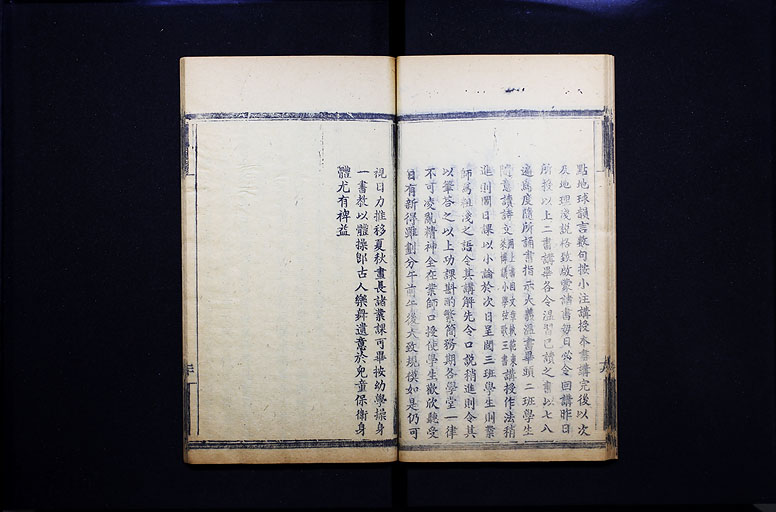 點地球韻言數句按小注講授本書講完後以次
及地理淺說格致啟蒙諸書翌日必令回講昨日
所授以上二書講畢各令溫習已讀之書以七八
遍為度隨所誦書指示大義溫書畢頭二班學生
隨意讀詩文講授作法稍
進則閒日課以小論於次日呈閱三班學生則業
師為粗淺之語令其講解先令口說稍進則令其
以筆答之以上功課斟酌繁簡務期各學堂一律
不可凌亂精神全在業師口授使學生歡欣聽受
日有新得雖劃分午前午後大致規模如是仍可
視日力推移夏秋晝長諸業課可畢按幼學操身
一書教以體操卽古人樂舞遺意於兒童保衛身
體尤有裨益